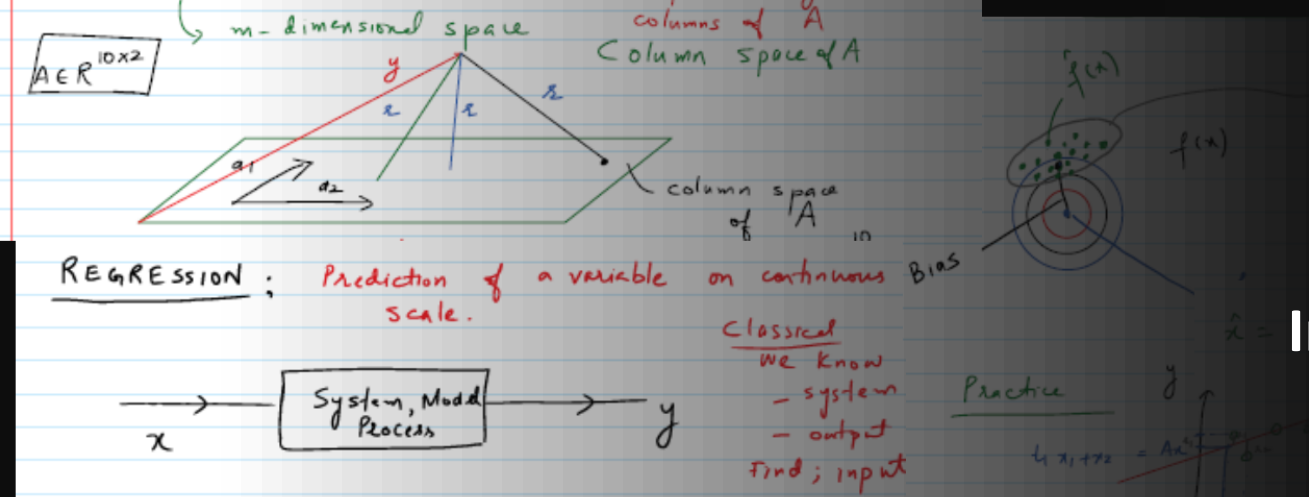 m- dimensional space
columns of A
Column space of A
A ∈ R^10×2
y
r
r
r
a1
a2
column space
of A
10
f̂(x)
f(x)
Bias
REGRESSION : Prediction of a variable on continuous
scale.
x
System, Model
Process
y
Classical
we know
- system
- output
Find ; input
x̂ =
Practice
y